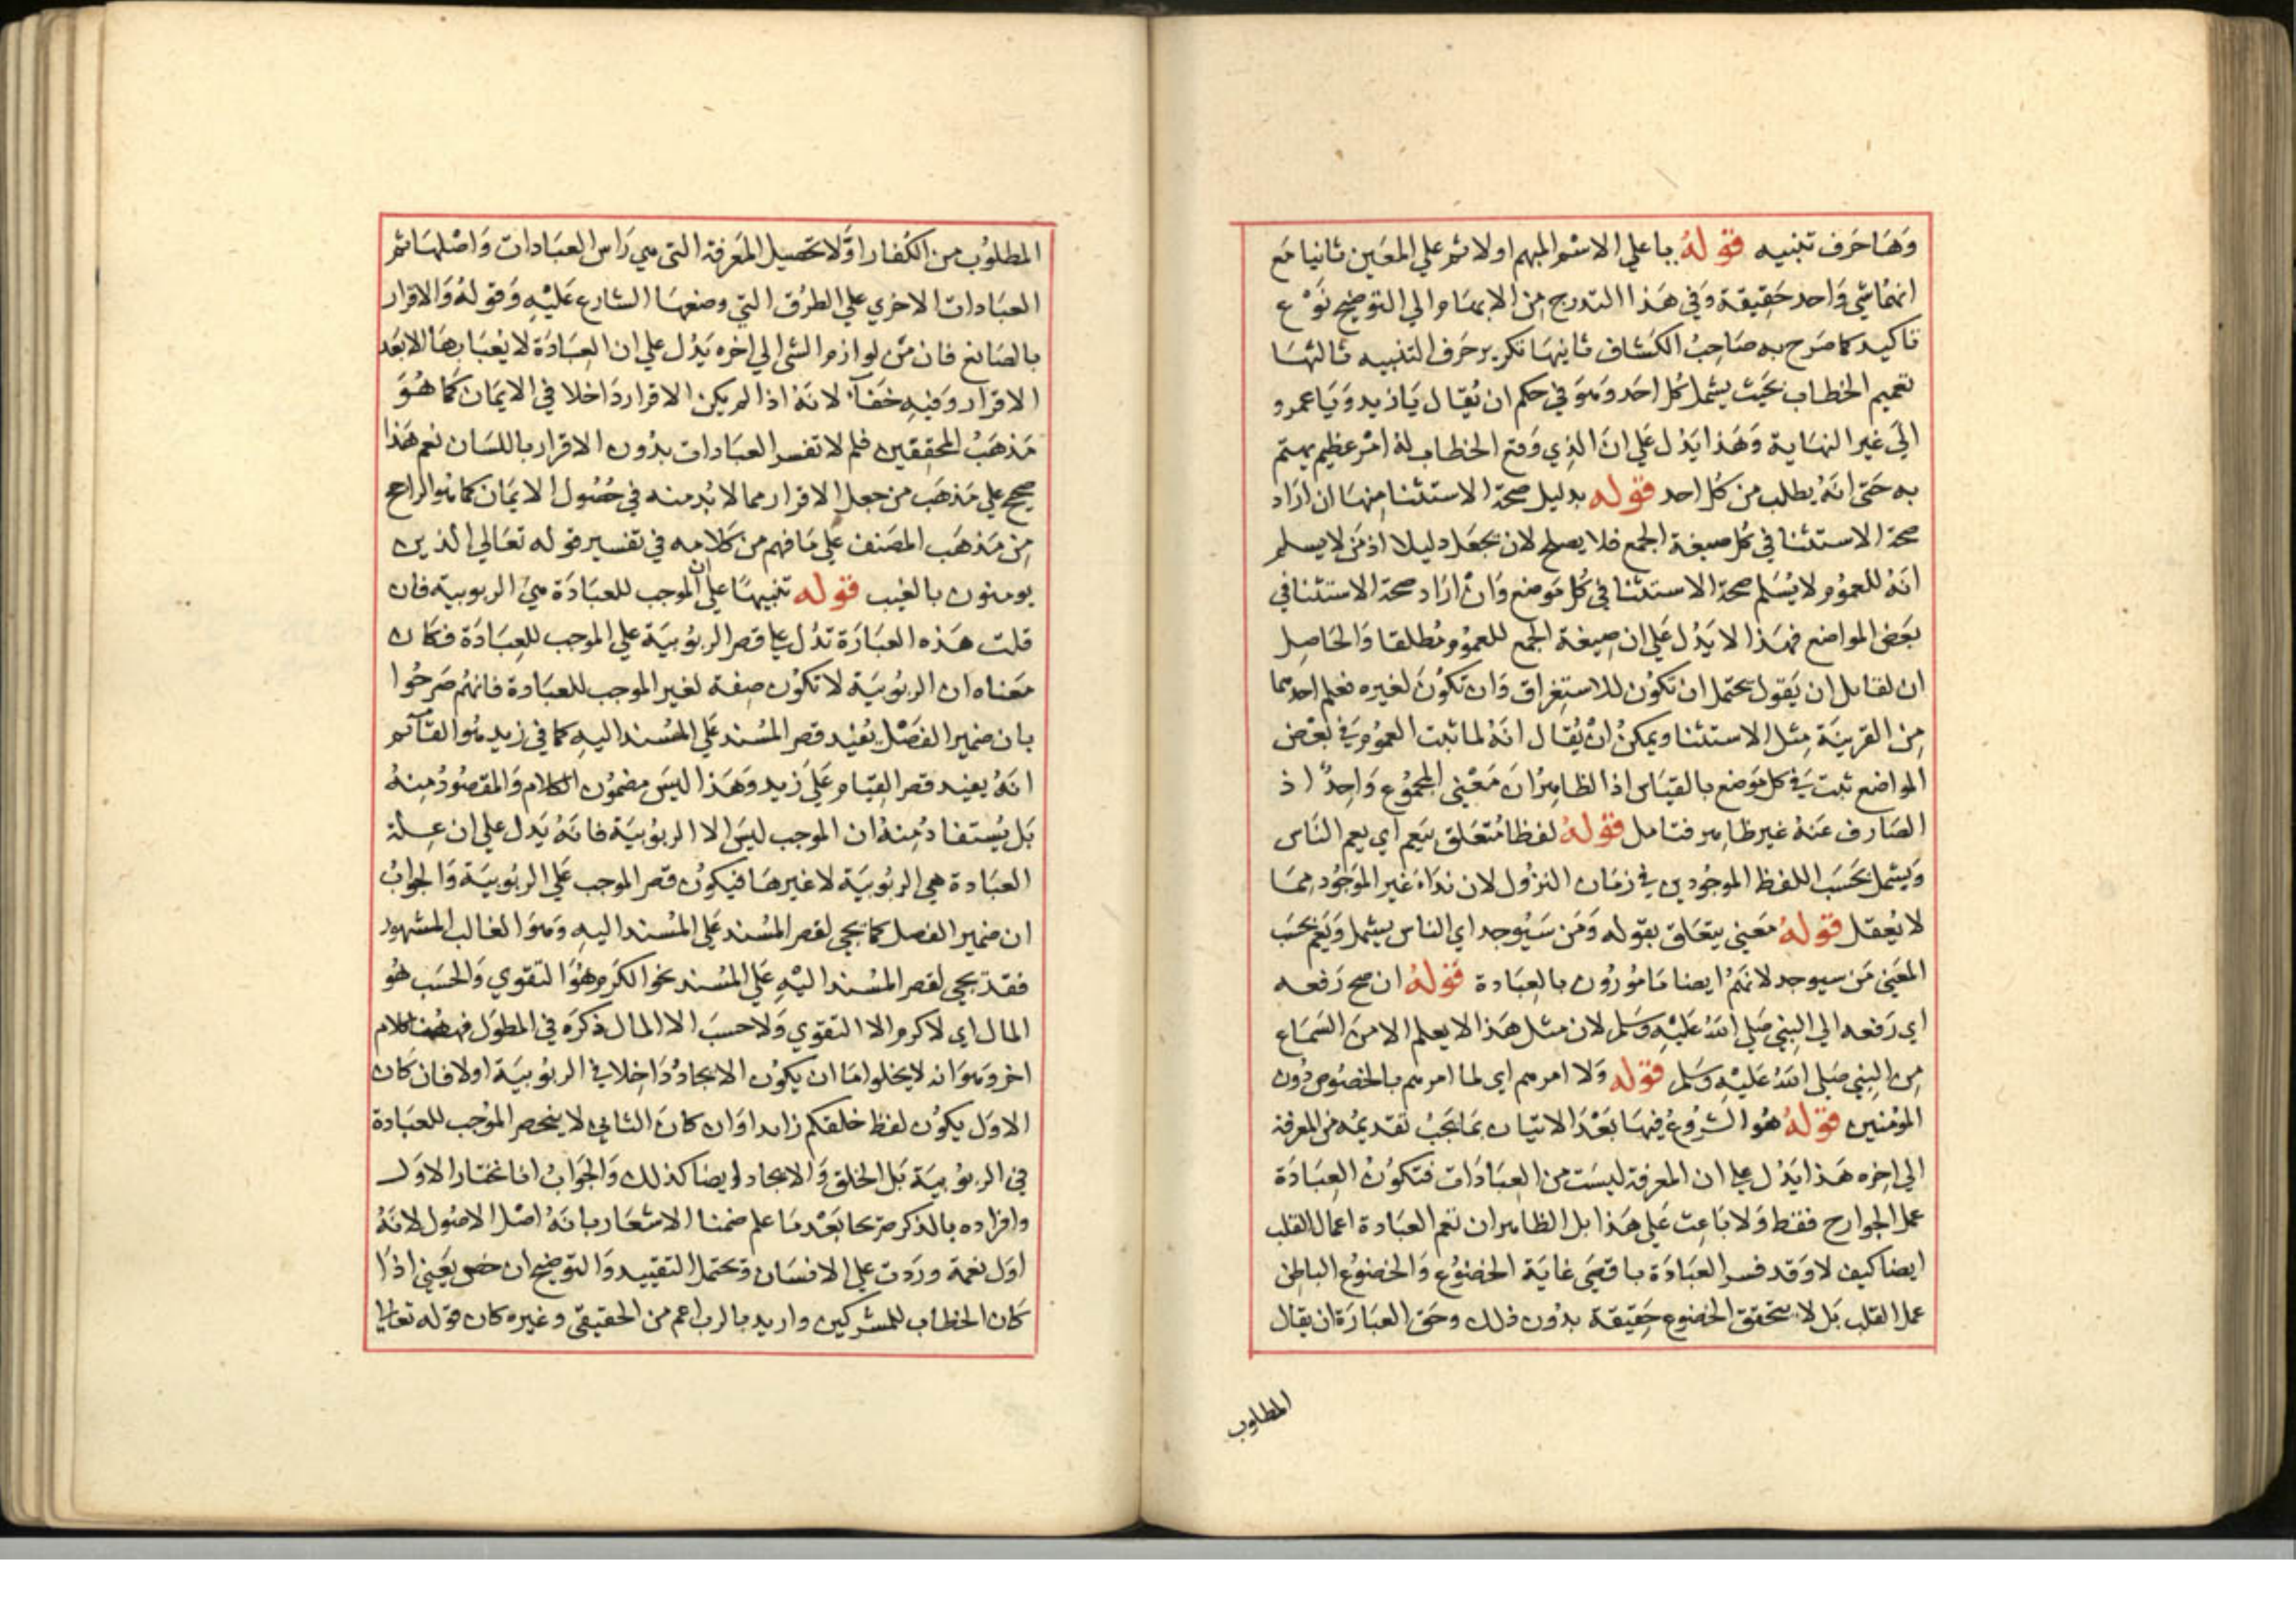 وَهَا حَرف تنبيه قوله بيا علي الاسم المبهم اولا ثم علي المعَين ثانيا مَع
انهما شي وَاحد حَقيقة وَفي هَذا التدرج مِن الابهام الي التوضيح نَوْع
تاكيد كما صَرح به صَاحبُ الكشاف ثانيها تكرير حَرف التنبيه ثالثهَا
تعميم الخطاب بحَيث يشمل كُل احَد وَهوَ في حكم ان يُقال يَا زيد وَيَا عمرو
الَي غير النهَاية وَهَذا يَدُل عَلي انَ الذِي وَقع الخطاب لهُ امْر عظيم يهتم
به حَتى انهُ يطلب من كُل احد قوله بدليل صحة الاستثنا مِنهَا ان ارَاد
صحة الاستثنا في كُل صيغة الجمع فلا يصلح لان يجعَل دليلا اذ مَن لا يسلم
انهُ للعمُوم لا يُسَلم صحة الاستثنا في كُل مَوضع وَانْ ارَاد صحة الاستثنا في
بعَض المواضع فهَذا لا يَدُل عَلي ان صِيغة الجمع للعمُوم مُطلقا وَالحَاصِل
ان لقايل ان يَقول يحتمل ان تكوُن للاستِغراق وَان تكوُنَ لغيره فعلم احدهما
مِن القرينَة مِثل الاستثنا ويمكنُ انْ يُقال انهُ لما ثبت العمُوم في بعْض
المواضع ثبت في كل مَوضع بالقيَاس اذ الظاهِرُ انَ مَعْني المجموُع وَاحِدٌ اذ
الصَارف عَنهُ غير ظاهر فتامل قوله لفظا مُتعَلق بيَعم اي يعم النَاس
وَيشمل بحَسَب اللفظ الموجُودين في زمَان النزوُل لان ندَاءَ غير الموَجُود مِمَا
لا يُعقل قوله مَعني يتعَلق بقوله وَمَن سَيُوجد اي الناس يشمل وَيَعُم بحَسَب
المعَني مَن سيوجد لانهُم ايضا مَامُوُرُون بالعِبَادة قوله ان صح رَفعه
اي رَفعه الي النبِي صَلي اللهُ عَليْهِ وَسَلم لان مثل هَذا لا يعلم الا منَ السَمَاع
مِن النبِي صَلي اللهُ عَليْهِ وَسَلم قوله وَلا امرهم اي لما امرهم بالخصُوص دُون
المؤمنين قوله هُو الشُروُع فيهَا بَعْدَ الاتيَان بمَا يَجبُ تقديمُه مَن المعرفة
الي اخِره هَذا يَدُل علي ان المعرفة ليسَت من العِبَادَات فتكوُنُ العِبَادَة
عمل الجوارح فقط وَلا بَاعِث عَلي هَذا بل الظاهر ان تعم العبَادة اعمال القلب
ايضا كيف لا وَقد فسر العبَادَة باقصَي غايَة الخضوُع وَالخضوُع الباطِن
عمل القلب بَل لا يتحقق الخضوع حَقِيقة بدُون ذلك وحَق العبَارَة ان يقال
المطلوب
المطلوُب من الكفار اوَّلا تحصيل المَعرفة التي هي رَاس العبَادات وَاصْلهَا ثم
العبَادات الاخري علي الطرُق التي وضعهَا الشارع عَليْهِ وَقوله وَالاقرار
بالصَانع فان مِن لوازم الشي الي اخره يَدُل علي ان العِبَادَة لا يُعبَا بهَا الا بعَد
الاقرار وَفيهِ خفَآء لانهُ اذا لم يكن الاقرار دَاخلا في الايمَان كَما هُوَ
مَذهَبُ المحققين فلم لا تفسر العبَادات بدُون الاقرار باللسَان نعم هَذا
صحيح علي مَذهَب من جعل الاقرار مما لا بُد منه في حُصُول الايمَان كما هُو الراجح
مِن مَذهَب المصَنف علي مَا فهم من كَلامه في تفسير قوله تعَالي الذين
يومنون بالغيب قوله تنبيهًا علي ان الموجب للعبَادَة هيَ الربوبية فان
قلت هَذه العبَارَة تدُل علي قصر الربوُبيَة علي الموجب للعِبَادَة فكَان
مَعناه ان الربوُبيَة لا تكوُن صِفة لغير الموجب للعبَادة فانهُم صَرحُوا
بان ضمير الفَصْل يفيْد قصر المسُند عَلي المسُند اليهِ كما في زيد هُوَ القآئم
انهُ يفيد قصر القيَام عَلَي زيد وَهَذا ليسَ مضموُن الكلام وَالمقصُودُ مِنهُ
بَل يُستفادُ مِنهُ ان الموجب ليسَ الا الربوُبيَة فانهُ يَدل علي ان علة
العبَادة هي الربوُبيَة لا غيرهَا فيكوُن قصر الموجب عَلي الربوُبيَة وَالجوابُ
ان ضمير الفصل كما يجي لقصر المسُند عَلي المسُند اليهِ وَهوَ الغالب المشهور
فقد يجي لقصر المسُند اليْهِ عَلي المسُند نحو الكَرم هُوَ التقوي وَالحَسَب هُو
المال اي لا كرم الا التقوي وَلا حسَبَ الا المال ذكرَه في المطوَل فههنا كلام
اخر وَهوَ انه لا يخلوا امَا ان يكوُن الايجادُ دَاخِلا في الربوُبيَة اولا فان كَان
الاوَل يكوُن لفظ خلقكم زايدا وَان كانَ الثاني لا ينحصر الموُجب للعبَادة
في الربوُبيَة بَل الخلق وَالايجاد ايضا كذلك وَالجَوابُ انا نختار الاوَل
وافراده بالذكر صَرِيحا بَعْد مَا علم ضمنا الاشعَار بانهُ اصْل الاصُول لانهُ
اوَل نعمة ورَدت علي الانسَان قوله يحتمل التقييد وَالتوضيح ان خص يَعني اذا
كَان الخطاب للمشركين واريد بالرب اعم من الحقيقي وغيره كان قوله تعالي